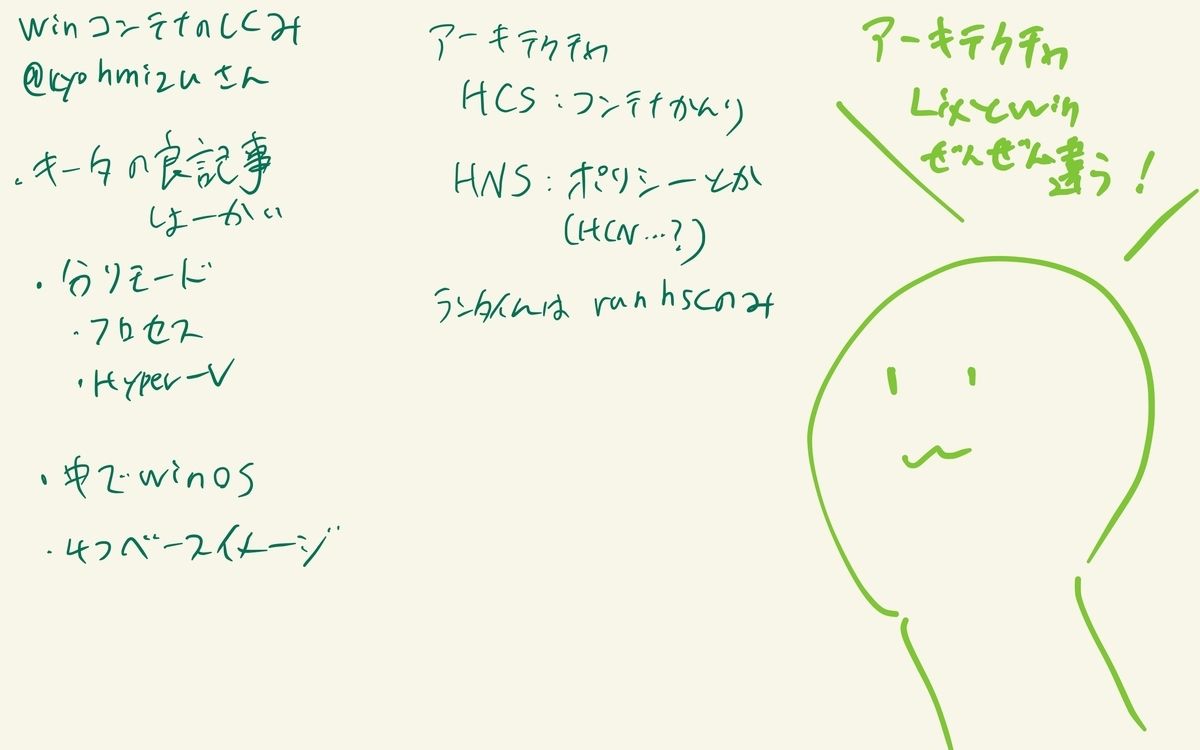 winコンテナのしくみ
@kyohmizuさん
・キータの良記事
しょーかい
・分りモード
・プロセス
・Hyper-V
・中でwinOS
・4つベースイメージ
アーキテクチャ
HCS:コンテナかんり
HNS:ポリシーとか
(HCN…?)
ランタイムは runhscのみ
アーキテクチャ
Lixとwin
ぜんぜん違う!